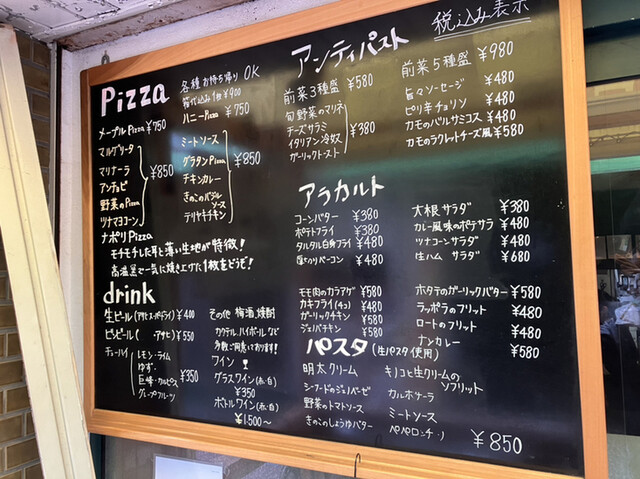 税込み表示
Pizza
各種お持ち帰りOK
箱代込み1枚¥900
メープルPizza ¥750
ハニーPizza ¥750
マルゲリータ
マリナーラ
アンチョビ
野菜のPizza
ツナマヨコーン
¥850
ナポリPizza
ミートソース
グラタンPizza
チキンカレー
きのこのバジル
ソース
テリヤキチキン
¥850
モチモチした耳と薄い生地が特徴!
高温窯で一気に焼き上げた1枚をどうぞ!
drink
生ビール(アサヒスーパードライ) ¥400
ビンビール(アサヒ) ¥550
チューハイ
レモン・ライム
ゆず・
巨峰・カルピス
グレープフルーツ
¥350
その他 梅酒、焼酎
カクテル、ハイボールなど
多数ご用意しております!
ワイン!
グラスワイン(赤・白)
¥350
ボトルワイン(赤・白)
¥1500~
アンティパスト
前菜3種盛 ¥580
旬野菜のマリネ
チーズサラミ
イタリアン冷奴
ガーリックトースト
¥380
前菜5種盛 ¥980
旨々ソーセージ ¥480
ピリ辛チョリソン ¥480
カモのバルサミコス ¥480
カモのラクレットチーズ風 ¥580
アラカルト
コーンバター ¥380
ポテトフライ ¥380
タルタル白身フライ ¥480
ベーコン ¥480
大根サラダ ¥380
カレー風味のポテサラ ¥480
ツナコーンサラダ ¥480
生ハムサラダ ¥680
モモ肉のカラアゲ ¥580
カキフライ(4コ) ¥480
ガーリックチキン ¥580
ジェノバチキン ¥580
ホタテのガーリックバター ¥580
ラッポラのフリット ¥480
ロートのフリット ¥480
ナンカレー ¥580
パスタ(生パスタ使用)
明太クリーム
シーフードのジェノベーゼ
野菜のトマトソース
きのこのしょうゆバター
キノコと生クリームの
ソフリット
カルボナーラ
ミートソース
ペペロンチーノ
¥850